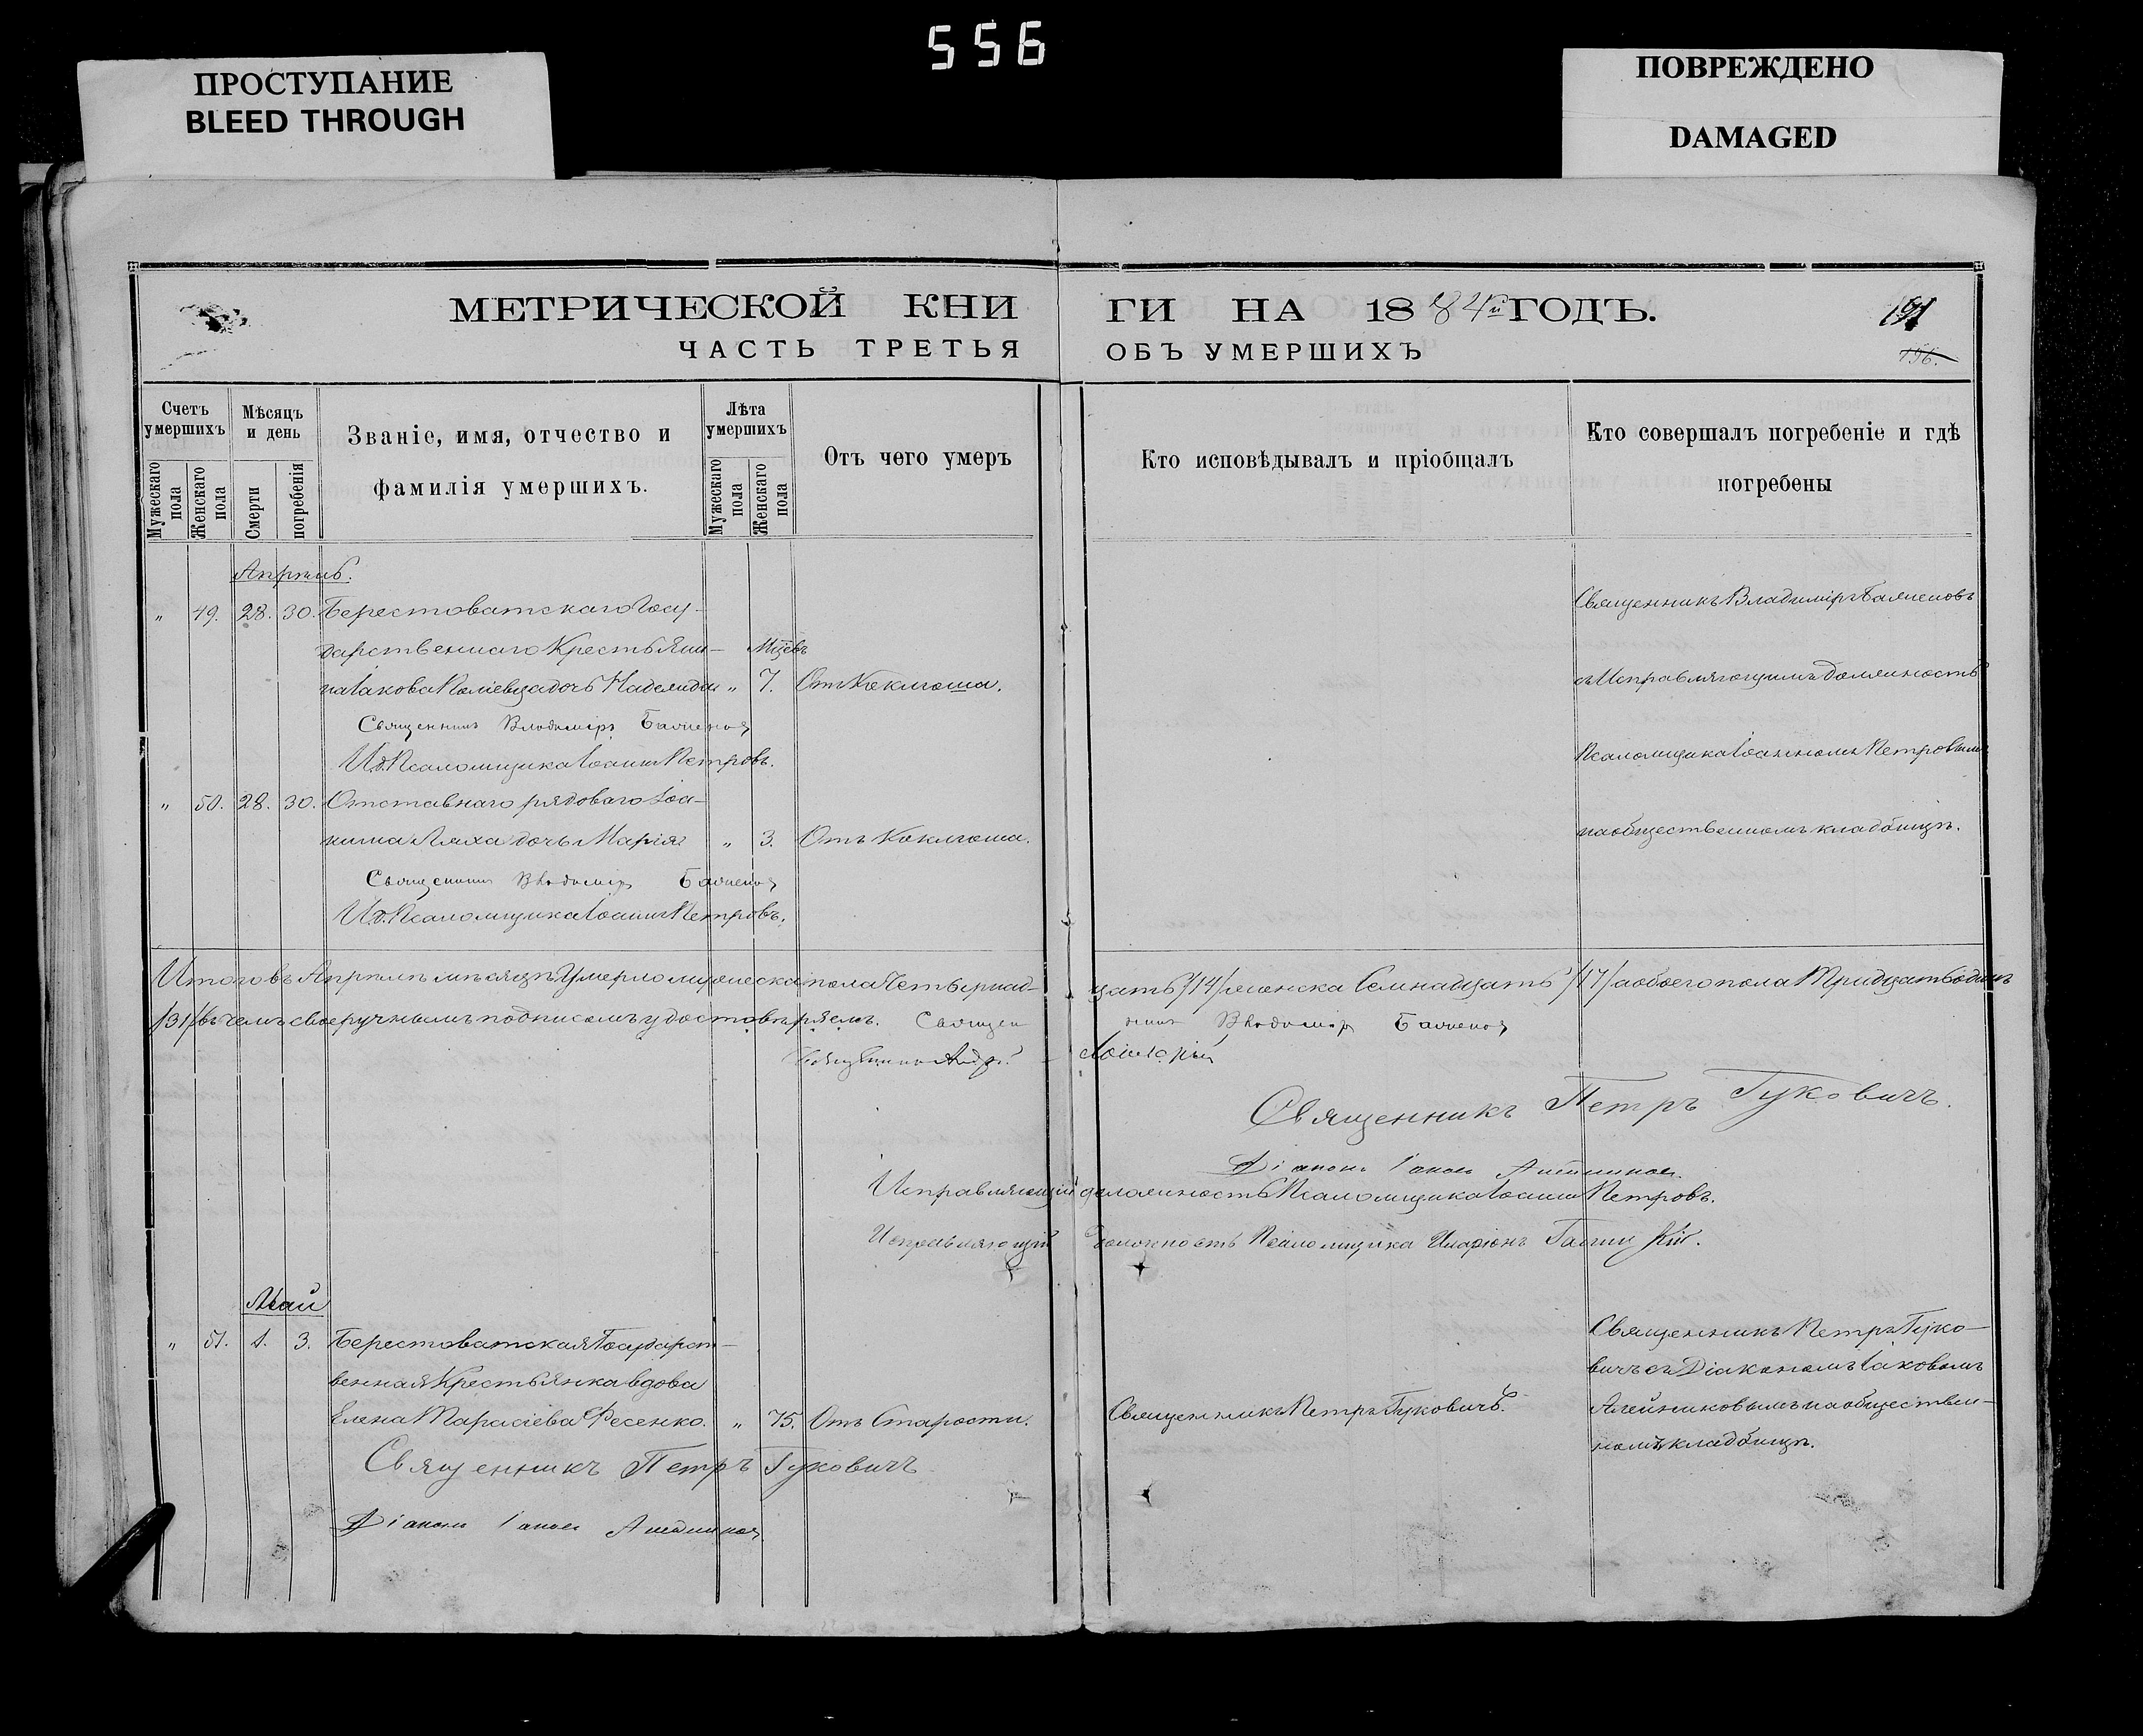 556
ПРОСТУПАНИЕ
BLEED THROUGH
ПОВРЕЖДЕНО
DAMAGED
МЕТРИЧЕСКОЙ КНИГИ НА 1884й ГОДЪ.
191
156.
ЧАСТЬ ТРЕТЬЯ ОБЪ УМЕРШИХЪ
Счетъ умершихъ
Мужескаго пола
Женскаго пола
Мѣсяцъ и день
Смерти
погребенія
Званіе, имя, отчество и
фамилія умершихъ.
Лѣта умершихъ
Мужескаго пола
Женскаго пола
Отъ чего умеръ
Кто исповѣдывалъ и пріобщалъ
Кто совершалъ погребеніе и гдѣ
погребены
Апрѣль.
" 49. 28. 30. Берестоватскаго Госу-
дарственнаго Крестьяни- Мцевъ
на Іакова дочь " 7. Отъ Коклюша.
Священникъ Владиміръ
И.д. Псаломщика Іоаннъ Петровъ.
Священникъ Владиміръ
съ Исправляющимъ Должность
Псаломщика Іоанномъ Петровымъ
на общественномъ кладбищѣ.
" 50. 28. 30. Отставнаго рядоваго Іоа-
нна Ляха дочь Марія " 3. Отъ Коклюша.
Священникъ Владиміръ
И.д. Псаломщика Іоаннъ Петровъ.
Итого въ Апрѣлѣ мѣсяцѣ Умерло мужеска пола Четырнад-цать /14/ женска Семнадцать /17/ а обоего пола Тридцать одинъ
/31/ въ чемъ своеручнымъ подписомъ удостовѣряемъ. Священникъ Владиміръ
Священникъ
Священникъ Петръ Гуковичъ.
Діаконъ Іаковъ
Исправляющій должность Псаломщика Іоаннъ Петровъ.
Исправляющій должность Псаломщика Иларіонъ
Май
" 51. 1. 3. Берестоватская Государст-
венная Крестьянка вдова
Елена Тарасіева Фесенко. " 75. Отъ Старости. Священникъ Петръ Гуковичъ.
Священникъ Петръ Гуковичъ
Діаконъ Іаковъ
Священникъ Петръ Гуко-
вичъ съ Діакономъ Іаковомъ
Алейниковымъ на обществен-
номъ кладбищѣ.